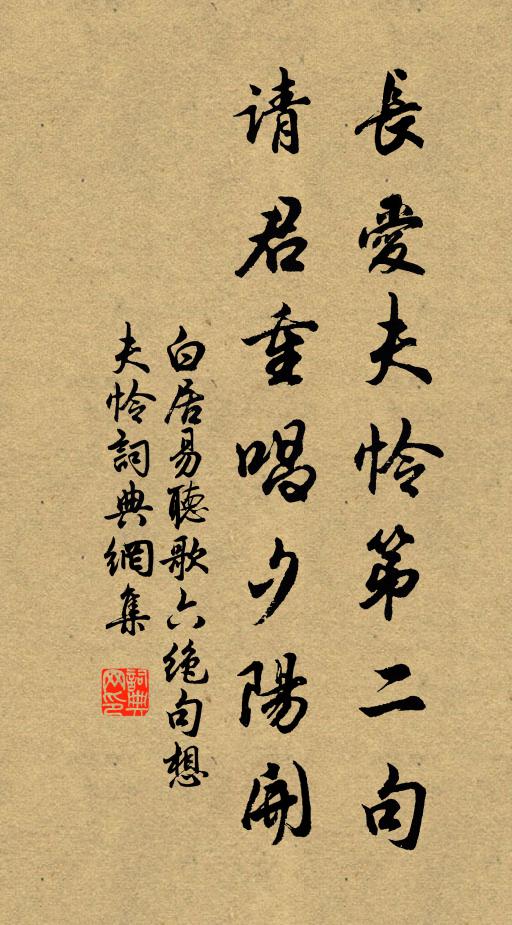 長愛夫怜第二句
请君重唱夕陽開
白居易聽歌六绝句想
夫怜詞典網集
詞典网印